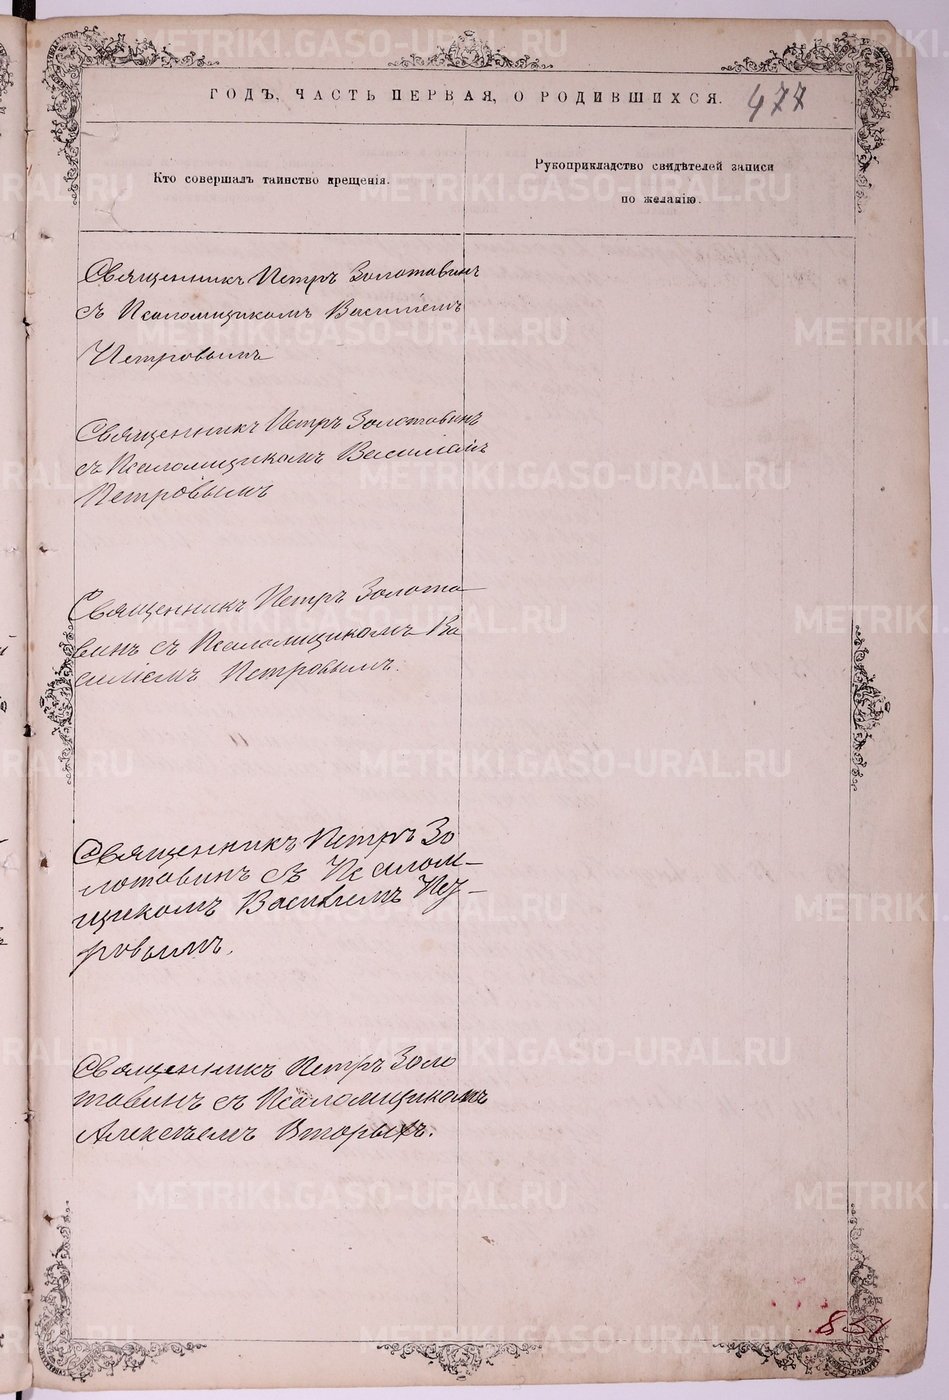 ГОДЪ, ЧАСТЬ ПЕРВАЯ, О РОДИВШИХСЯ. 477
Кто совершалъ таинство крещенія.
Рукоприкладство свидѣтелей записи
по желанію.
Священникъ Петръ Золотавинъ
съ Псаломщикомъ Василіемъ
Петровымъ
Священникъ Петръ Золотавинъ
съ Псаломщикомъ Василіемъ
Петровымъ
Священникъ Петръ Золота
винъ съ Псаломщикомъ Ва
силіемъ Петровымъ.
Священникъ Петръ Зо
лотавинъ съ Псалом-
щикомъ Василіемъ Пет-
ровымъ.
Священникъ Петръ Золо
тавинъ съ Псаломщикомъ
Алексѣемъ Вторыхъ.
METRIKI.GASO-URAL.RU